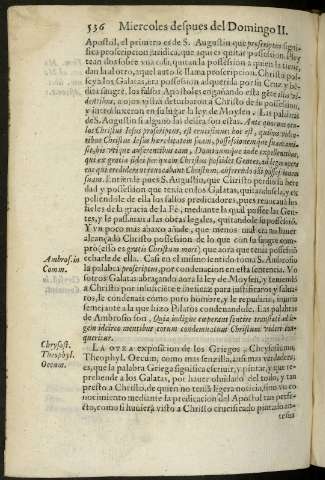 536 Miercoles despues del Domingo II.
Apostol, el primero es de S. Augustin que proscriptus signi-
fica proscripcion juridica, que aqui es quitar possession. Pley
tean dos sobre vna cosa, quitan la possession a quien la tiene,
dan la al otro, aquel auto se llama proscripcion. Christo pos-
seya los Galatas, era possession adquerida por su Cruz y be-
dita sangre, los falsos Apostoles engañando esta gête assi
dentibus, a ojos vistas deturbaron a Christo de su possession,
y introduxeron en su lugar la ley de Moysen. Las palabras
de S. Augustin si alguno las desea son estas. Ante quorum ocu-
los Christus Iesus proscriptus, est crucifixus: hoc est, quibus viden-
tibus Christus Iesus hæreditatem suam, possessionemque suam ami-
sit, his vtique auferentibus eam, Dominumque inde expellentibus,
qui ex gratia fidei per quam Christus possidet Gentes, ad legem opera
eum possessione
suam. Entiende pues S. Augustin, que Christo perdio la here
dad y possession que tenia en los Galatas, quitandosela, y ex
peliendole de ella los falsos predicadores, pues reuocaua los
fieles de la gracia de la Fè, mediante la qual possee las Gen-
tes, y se passauan a las obras legales, quitandole la possessiõ.
Y vn poco mas abaxo añade, que menos mal era no hauer
alcançado Christo possession de lo que con su sangre com-
prò (esso es gratis Christum mori) que aora que tenia possessiõ
echarle de ella. Casi en el mismo sentido toma S. Ambrosio
la palabra proscriptus, por condenacion en esta sentencia. Vo
sotros Galatas abraçando aora la ley de Moysen, y teniendo
a Christo por insuficiente e inutil para justificaros y saluà-
ros, le condenais como puro hombre, y le repudiais, injuria
semejante a la que hizo Pilatos condenandole. Las palabras
de Ambrosio son. Quia indigne corporum sentire transfudit ad le-
gem idcirco mentibus eorum condemnatus Christus videri
queritur.
LA OTRA exposicion de los Griegos, Chrysostomo,
Theophyl. Oecum. como mas senzilla, assi mas verdadera,
es, que la palabra Griega significa escriuir, y pintar, y que re-
prehende a los Galatas, por hauer oluidado del todo, y tan
presto a Christo, de quien no tenia ligera noticia, sino vn co-
nocimiento mediante la predicacion del Apostol tan perfe-
cto, como si huuiera visto a Christo crucificado pintado an-
te sus
Ambros. in
Comm.
Chrysost.
Theophyl.
Oecum.